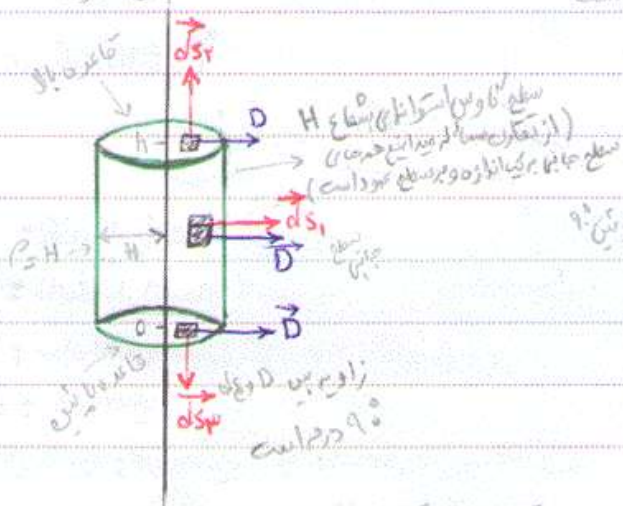 dS۲
قاعده بالا
D
سطح گاوس استوانه‌ای بشعاع H
(از تقارن مسأله میدانیم همه جای
سطح جانبی به یک اندازه و بر سطح عمود است)
h
dS۱
D
ρ=H
H
سطح
جانبی
۹۰
D
0
قاعده پائین
dS۳
زاویه بین D و ds
۹۰ درجه است